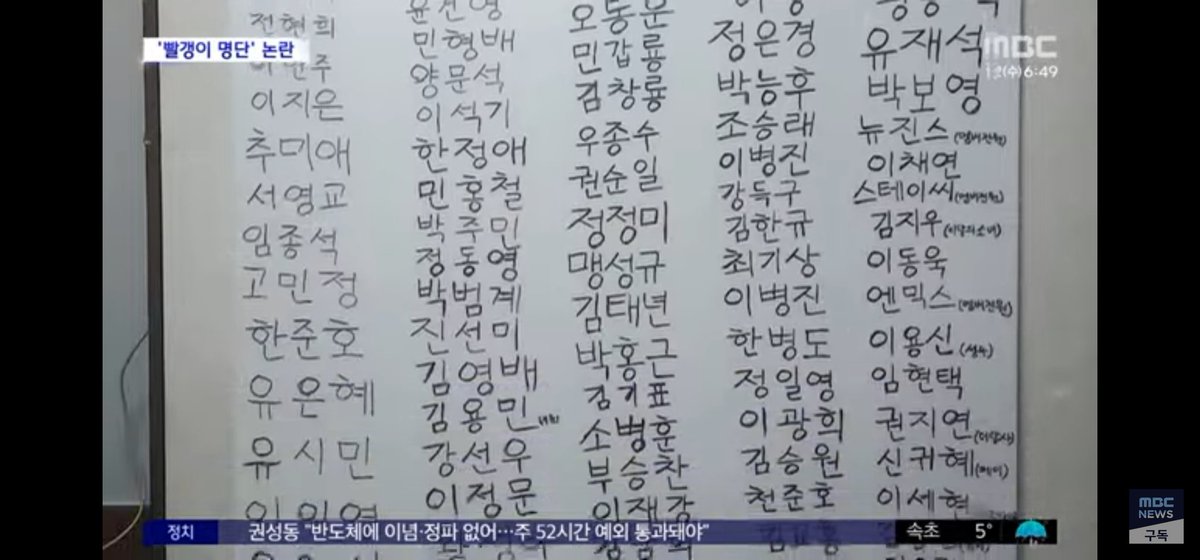 '빨갱이 명단' 논란
MBC
(수) 6:49
전현희
이지은
추미애
서영교
임종석
고민정
한준호
유은혜
유시민
윤건영
민형배
양문석
이석기
한정애
민홍철
박주민
정동영
박범계
진선미
김영배
김용민
강선우
이정문
오동운
민갑룡
김창룡
우종수
권순일
정정미
맹성규
김태년
박홍근
김기표
소병훈
부승찬
이재강
정은경
박능후
조승래
이병진
강득구
김한규
최기상
이병진
한병도
정일영
이광희
김승원
천준호
유재석
박보영
뉴진스(멤버전원)
이채연
스테이씨(멤버전원)
김지우(이달의소녀)
이동욱
엔믹스(멤버전원)
이용신(성우)
임현택
권지연
신귀혜
이세현
정치 권성동 "반도체에 이념·정파 없어…주 52시간 예외 통과돼야" 속초 5°
MBC
NEWS
구독